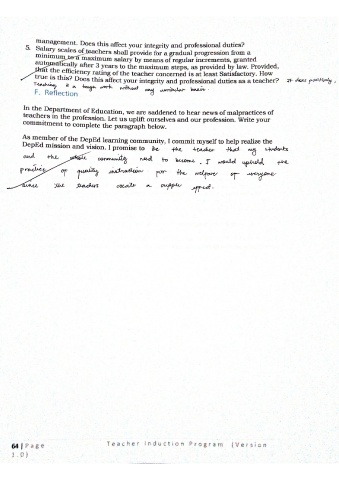 management. Does this affect your integrity and professional duties?
5. Salary scales of teachers shall provide for a gradual progression from a
minimum to a maximum salary by means of regular increments, granted
automatically after 3 years to the maximum steps, as provided by law. Provided,
that the efficiency rating of the teacher concerned is at least Satisfactory. How
true is this? Does this affect your integrity and professional duties as a teacher? It does positively.
Teaching is a tough work without any
F. Reflection
In the Department of Education, we are saddened to hear news of malpractices of
teachers in the profession. Let us uplift ourselves and our profession. Write your
commitment to complete the paragraph below.
As member of the DepEd learning community, I commit myself to help realize the
DepEd mission and vision. I promise to be the teacher that my students
and the whole community need to become. I would uphold the
practice of quality instruction for the welfare of everyone
since the teachers create a
64 | Page
Teacher Induction Program (Version
1.0)